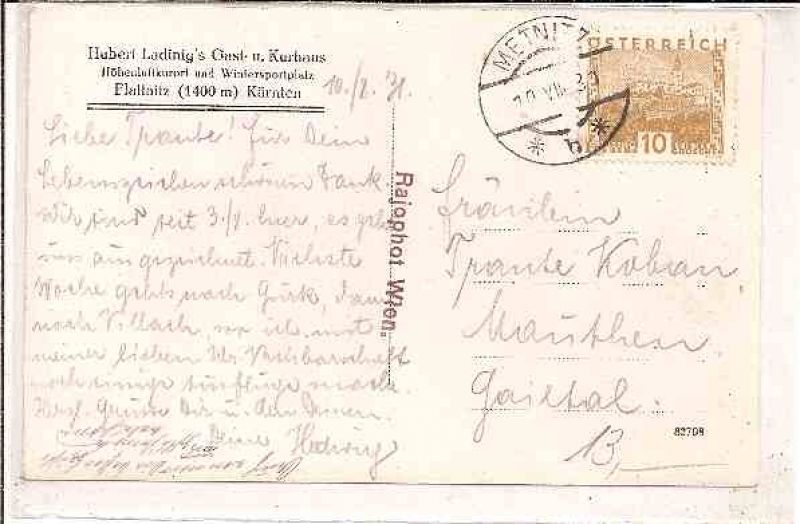 Hubert Ladinig's Gast- u. Kurhaus
Höhenluftkurort und Wintersportplatz
Flattnitz (1400 m) Kärnten
Liebe Traute! Für Dein
Lebenszeichen schönen Dank
Wir sind seit hier, es geht
uns ausgezeichnet. Nächste
Woche gehts nach Gurk, dann
nach Villach, wo ich mit
meiner lieben Nachbarschaft
noch einige Ausflüge mache.
Herzl. Grüsse Dir u. den Deinen
Deine Hedwig
Rajophot Wien.
METNITZ
b
ÖSTERREICH
10
Fräulein
Traute Koban
Mauthen
Gailtal.
82708
13,